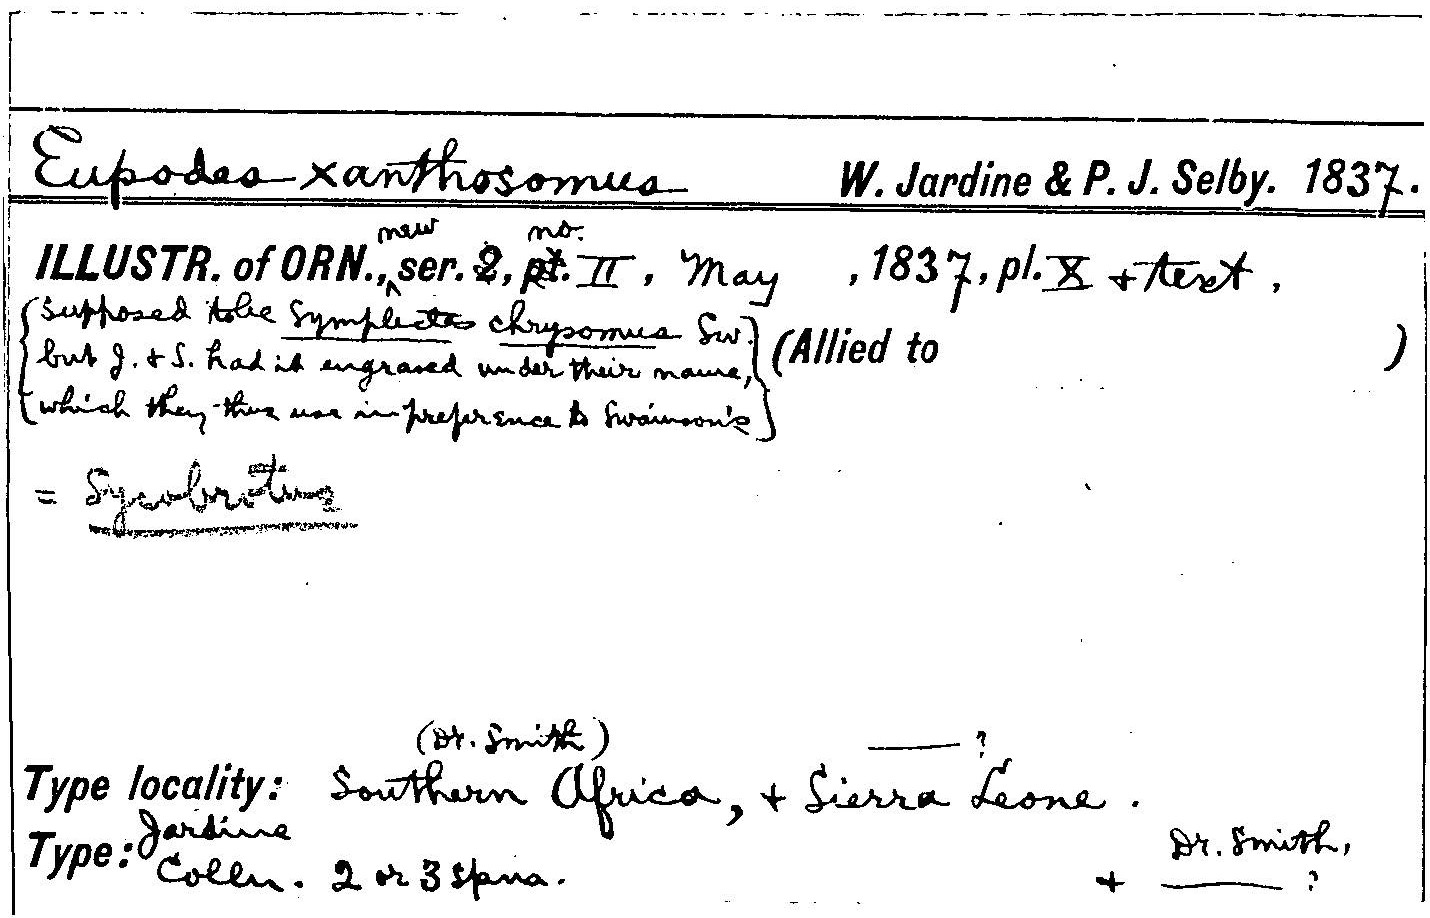 Eupodes xanthosomus W. Jardine & P. J. Selby. 1837.
new no.
ILLUSTR. of ORN., ser. 2, pt. II, May , 1837, pl. X + text,
{supposed to be Symplectes chrysomus Sw.} (Allied to )
but J. & S. had it engraved under their name,
which they thus use in preference to Swainson's
= Sycobrotus
(Dr. Smith) ——— ?
Type locality: Southern Africa, + Sierra Leone.
Jardine Dr. Smith,
Type: Colln. 2 or 3 spns. + ——— ?